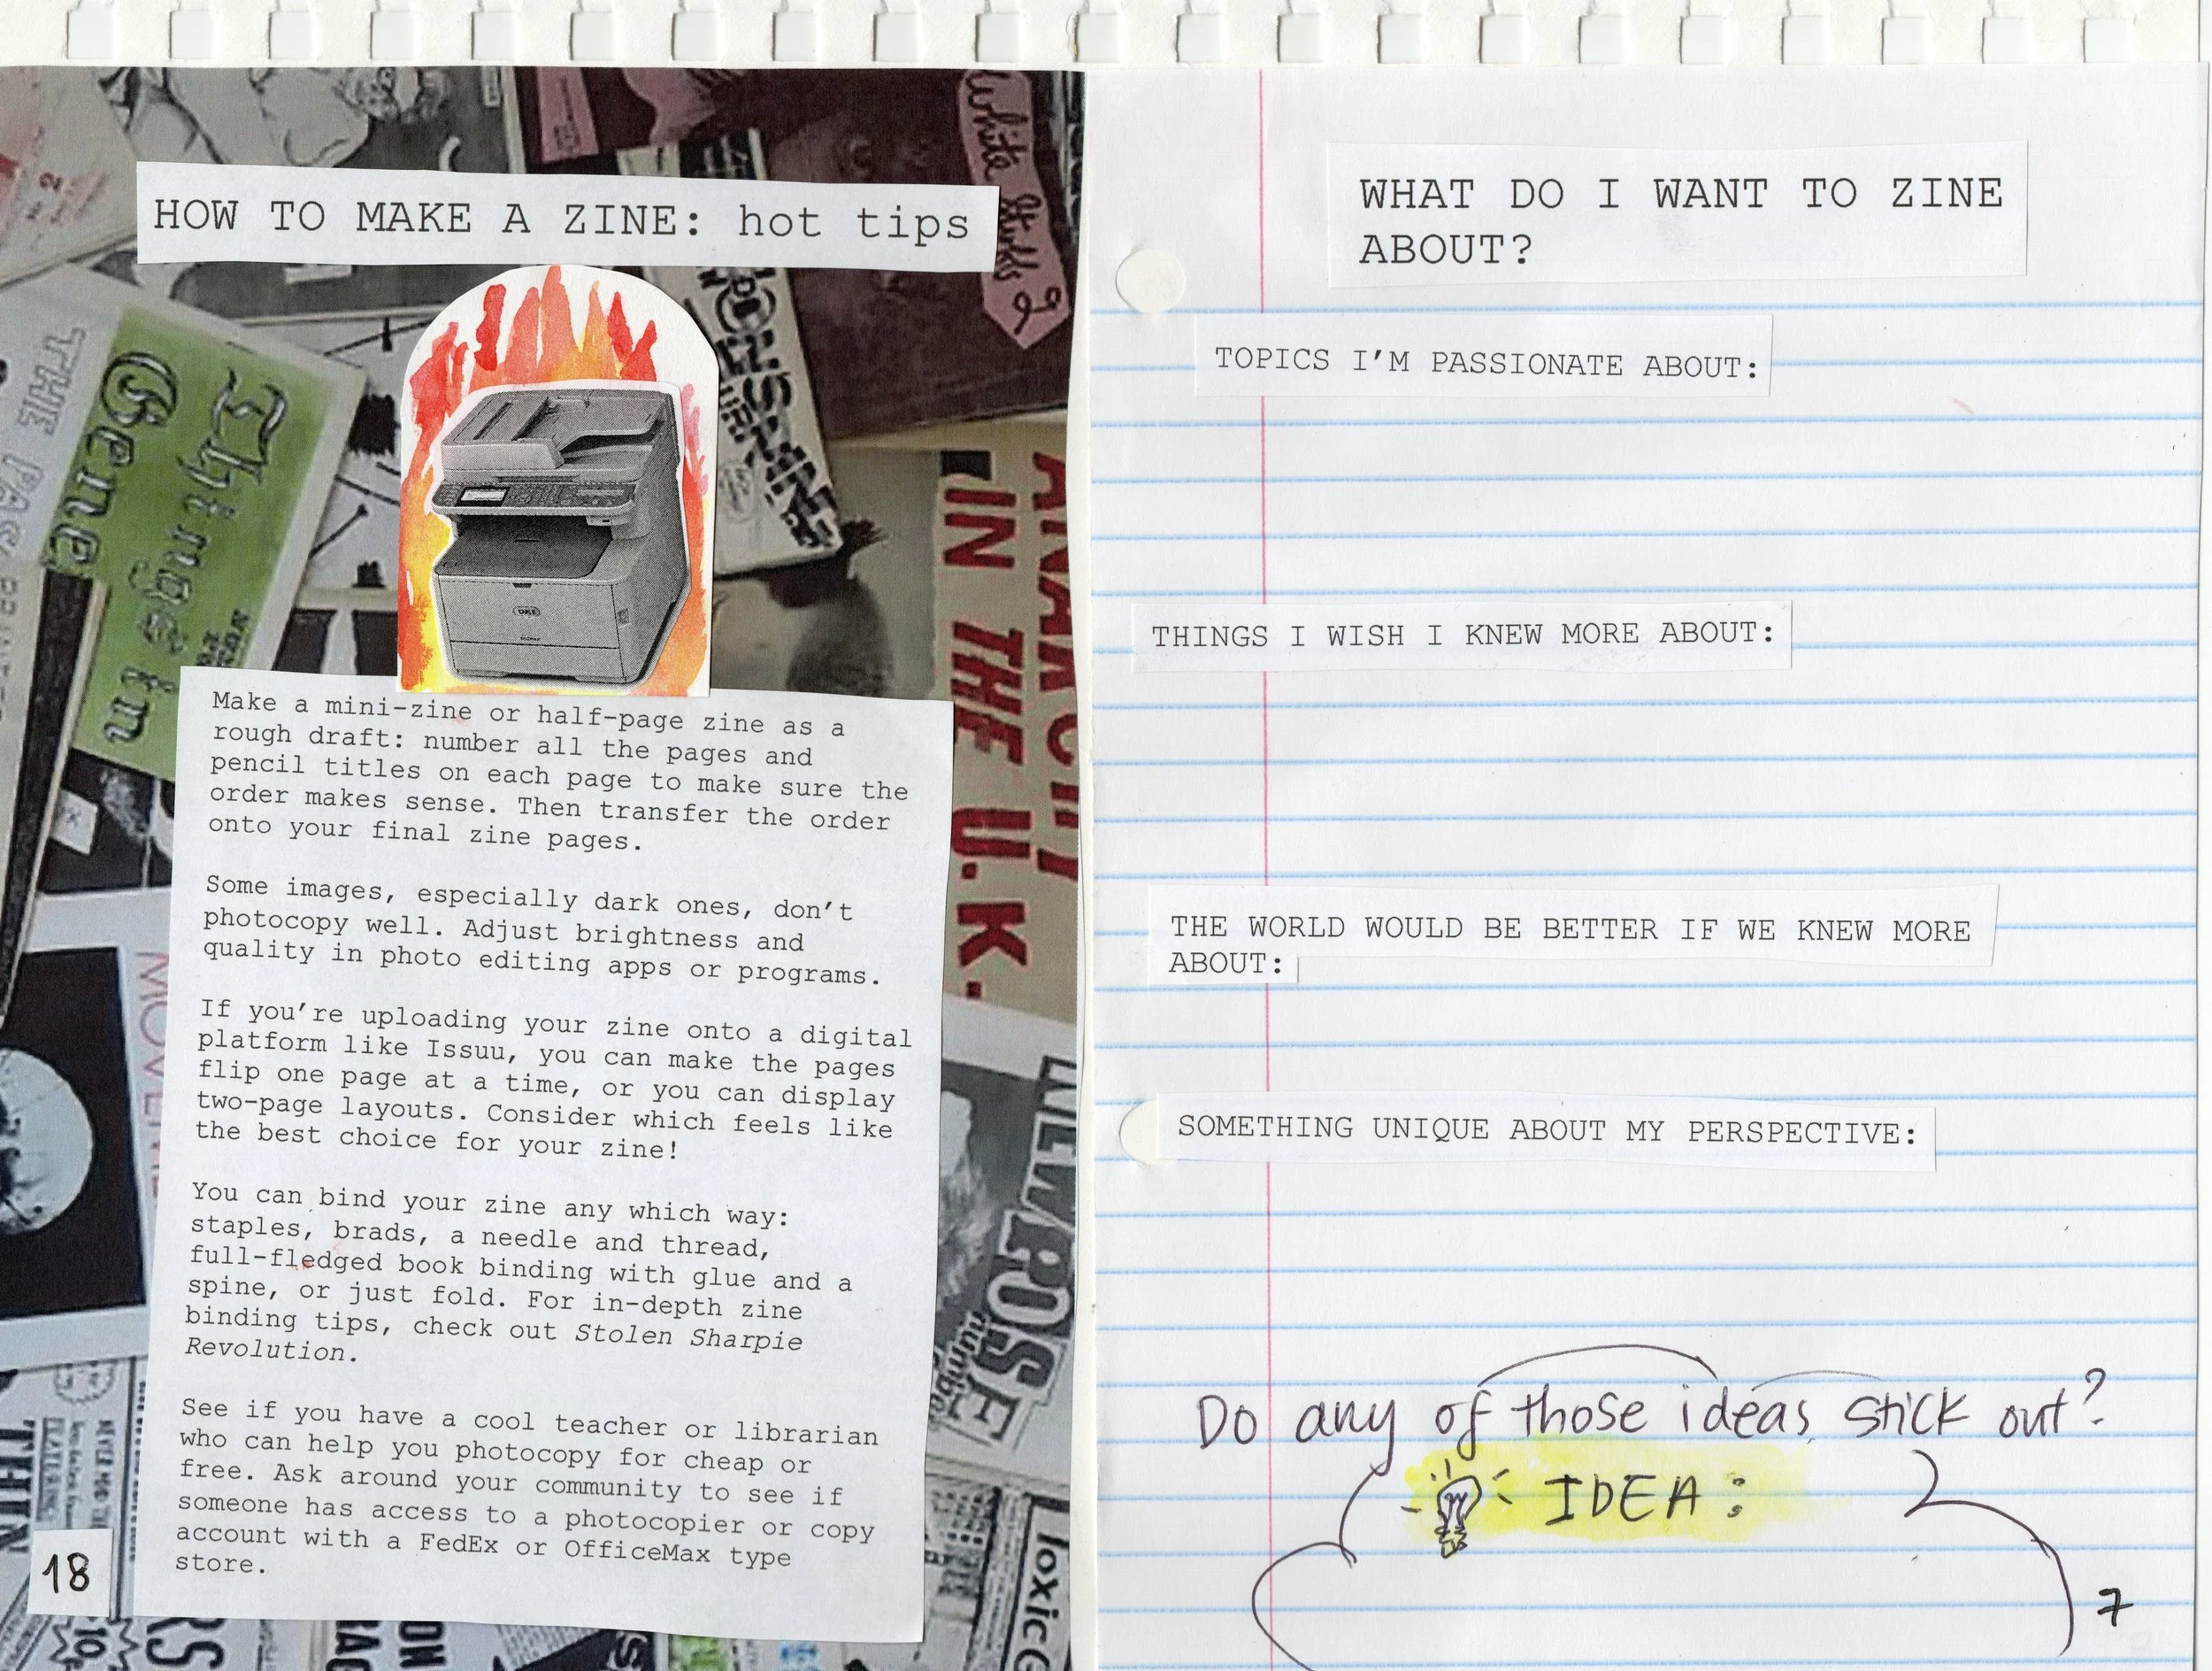 HOW TO MAKE A ZINE: hot tips
Make a mini-zine or half-page zine as a
rough draft: number all the pages and
pencil titles on each page to make sure the
order makes sense. Then transfer the order
onto your final zine pages.
Some images, especially dark ones, don't
photocopy well. Adjust brightness and
quality in photo editing apps or programs.
If you're uploading your zine onto a digital
platform like Issuu, you can make the pages
flip one page at a time, or you can display
two-page layouts. Consider which feels like
the best choice for your zine!
You can bind your zine any which way:
staples, brads, a needle and thread,
full-fledged book binding with glue and a
spine, or just fold. For in-depth zine
binding tips, check out Stolen Sharpie
Revolution.
See if you have a cool teacher or librarian
who can help you photocopy for cheap or
free. Ask around your community to see if
someone has access to a photocopier or copy
account with a FedEx or OfficeMax type
store.
18
OKI
Things in
Gene
THE PAS
IN THE U.K.
WHAT DO I WANT TO ZINE
ABOUT?
TOPICS I'M PASSIONATE ABOUT:
THINGS I WISH I KNEW MORE ABOUT:
THE WORLD WOULD BE BETTER IF WE KNEW MORE
ABOUT:
SOMETHING UNIQUE ABOUT MY PERSPECTIVE:
Do any of those ideas stick out?
IDEA:
7